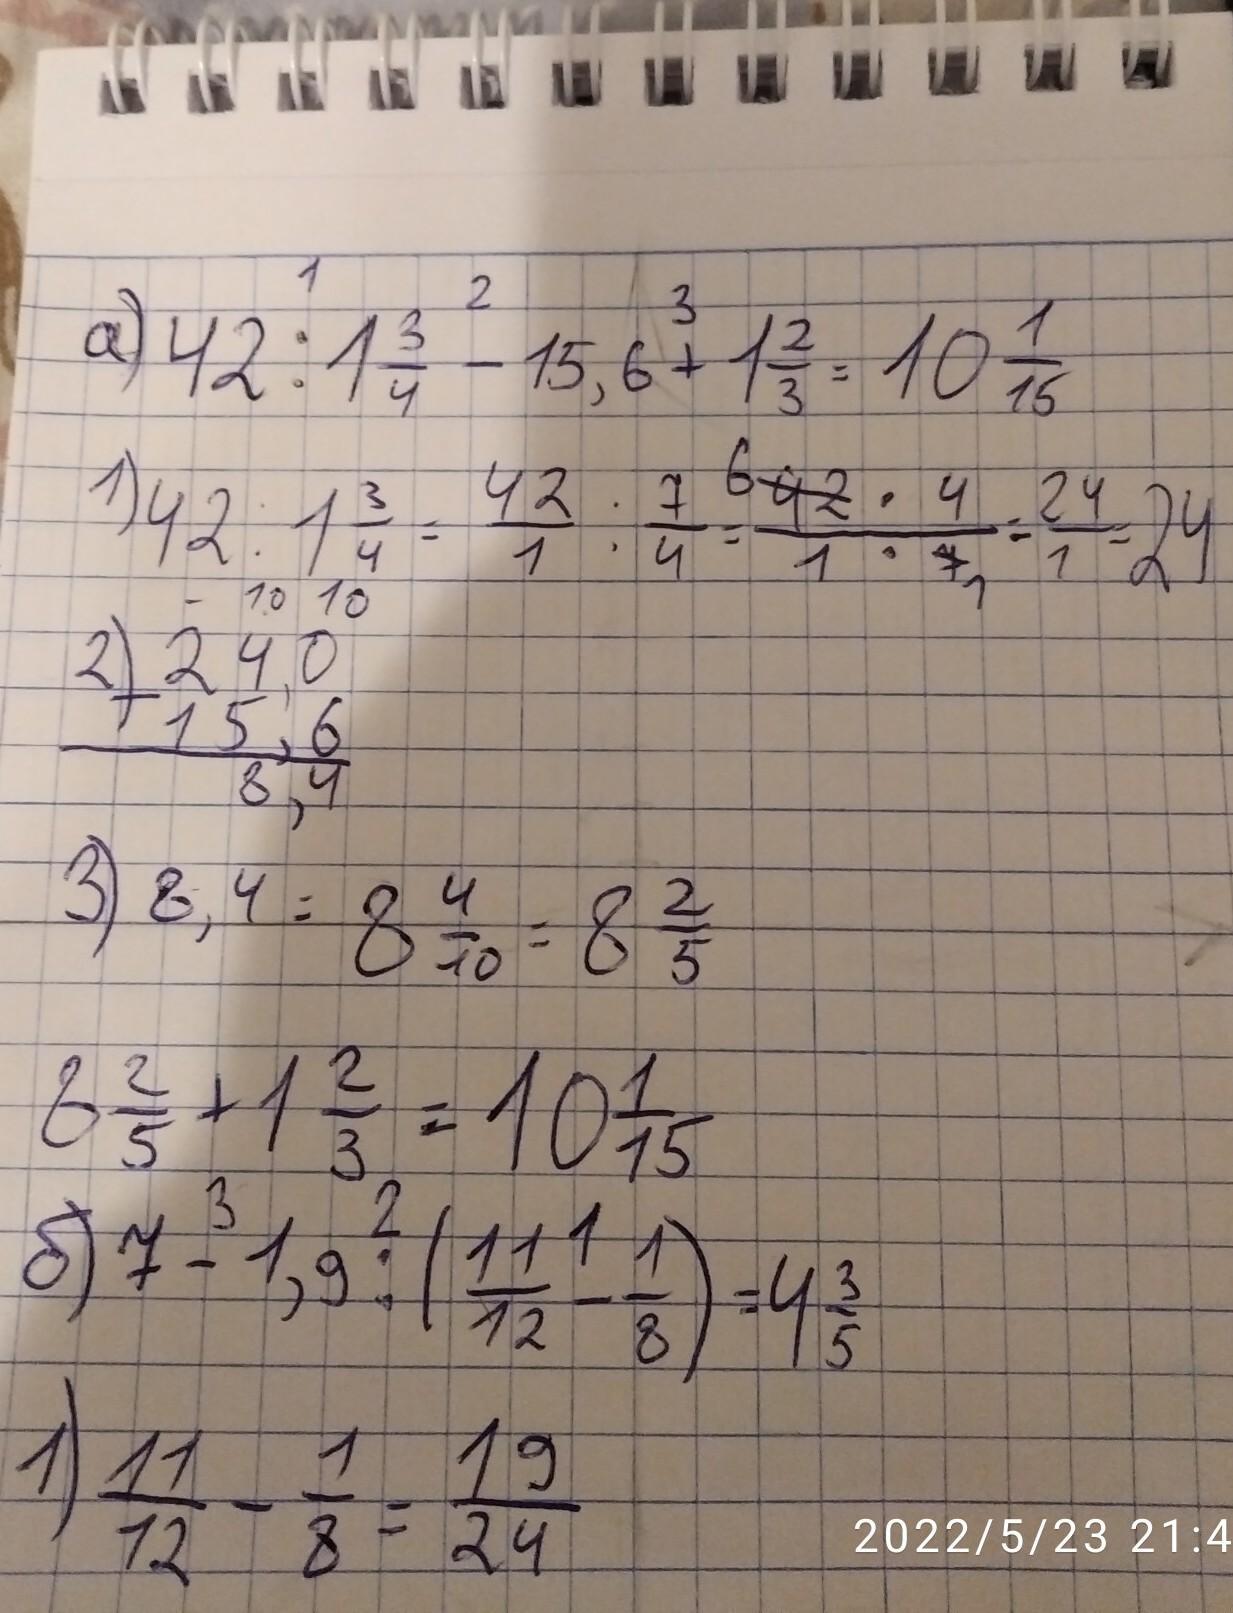 1 2 3
а) 42 : 1 3/4 - 15,6 + 1 2/3 = 10 1/15
1) 42 : 1 3/4 = 42/1 : 7/4 = 6 42 · 4 / 1 · 7 1 = 24/1 = 24
- 10 10
2) 24,0
- 15,6
8,4
3) 8,4 = 8 4/10 = 8 2/5
8 2/5 + 1 2/3 = 10 1/15
3 2 1
б) 7 - 1,9 : (11/12 - 1/8) = 4 3/5
1) 11/12 - 1/8 = 19/24
2022/5/23 21:4